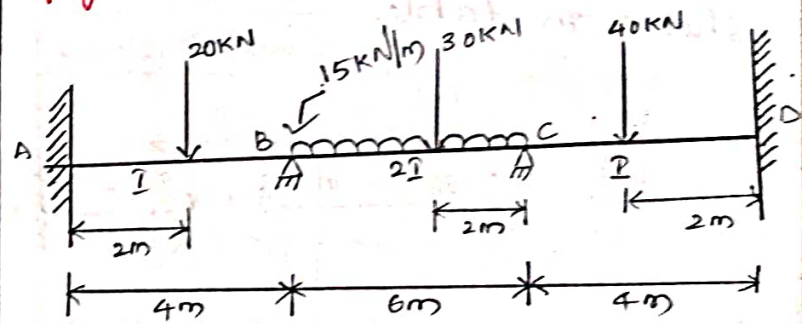 20KN
15KN/m
30KN
40KN
A
B
C
D
I
2I
I
2m
2m
2m
4m
6m
4m